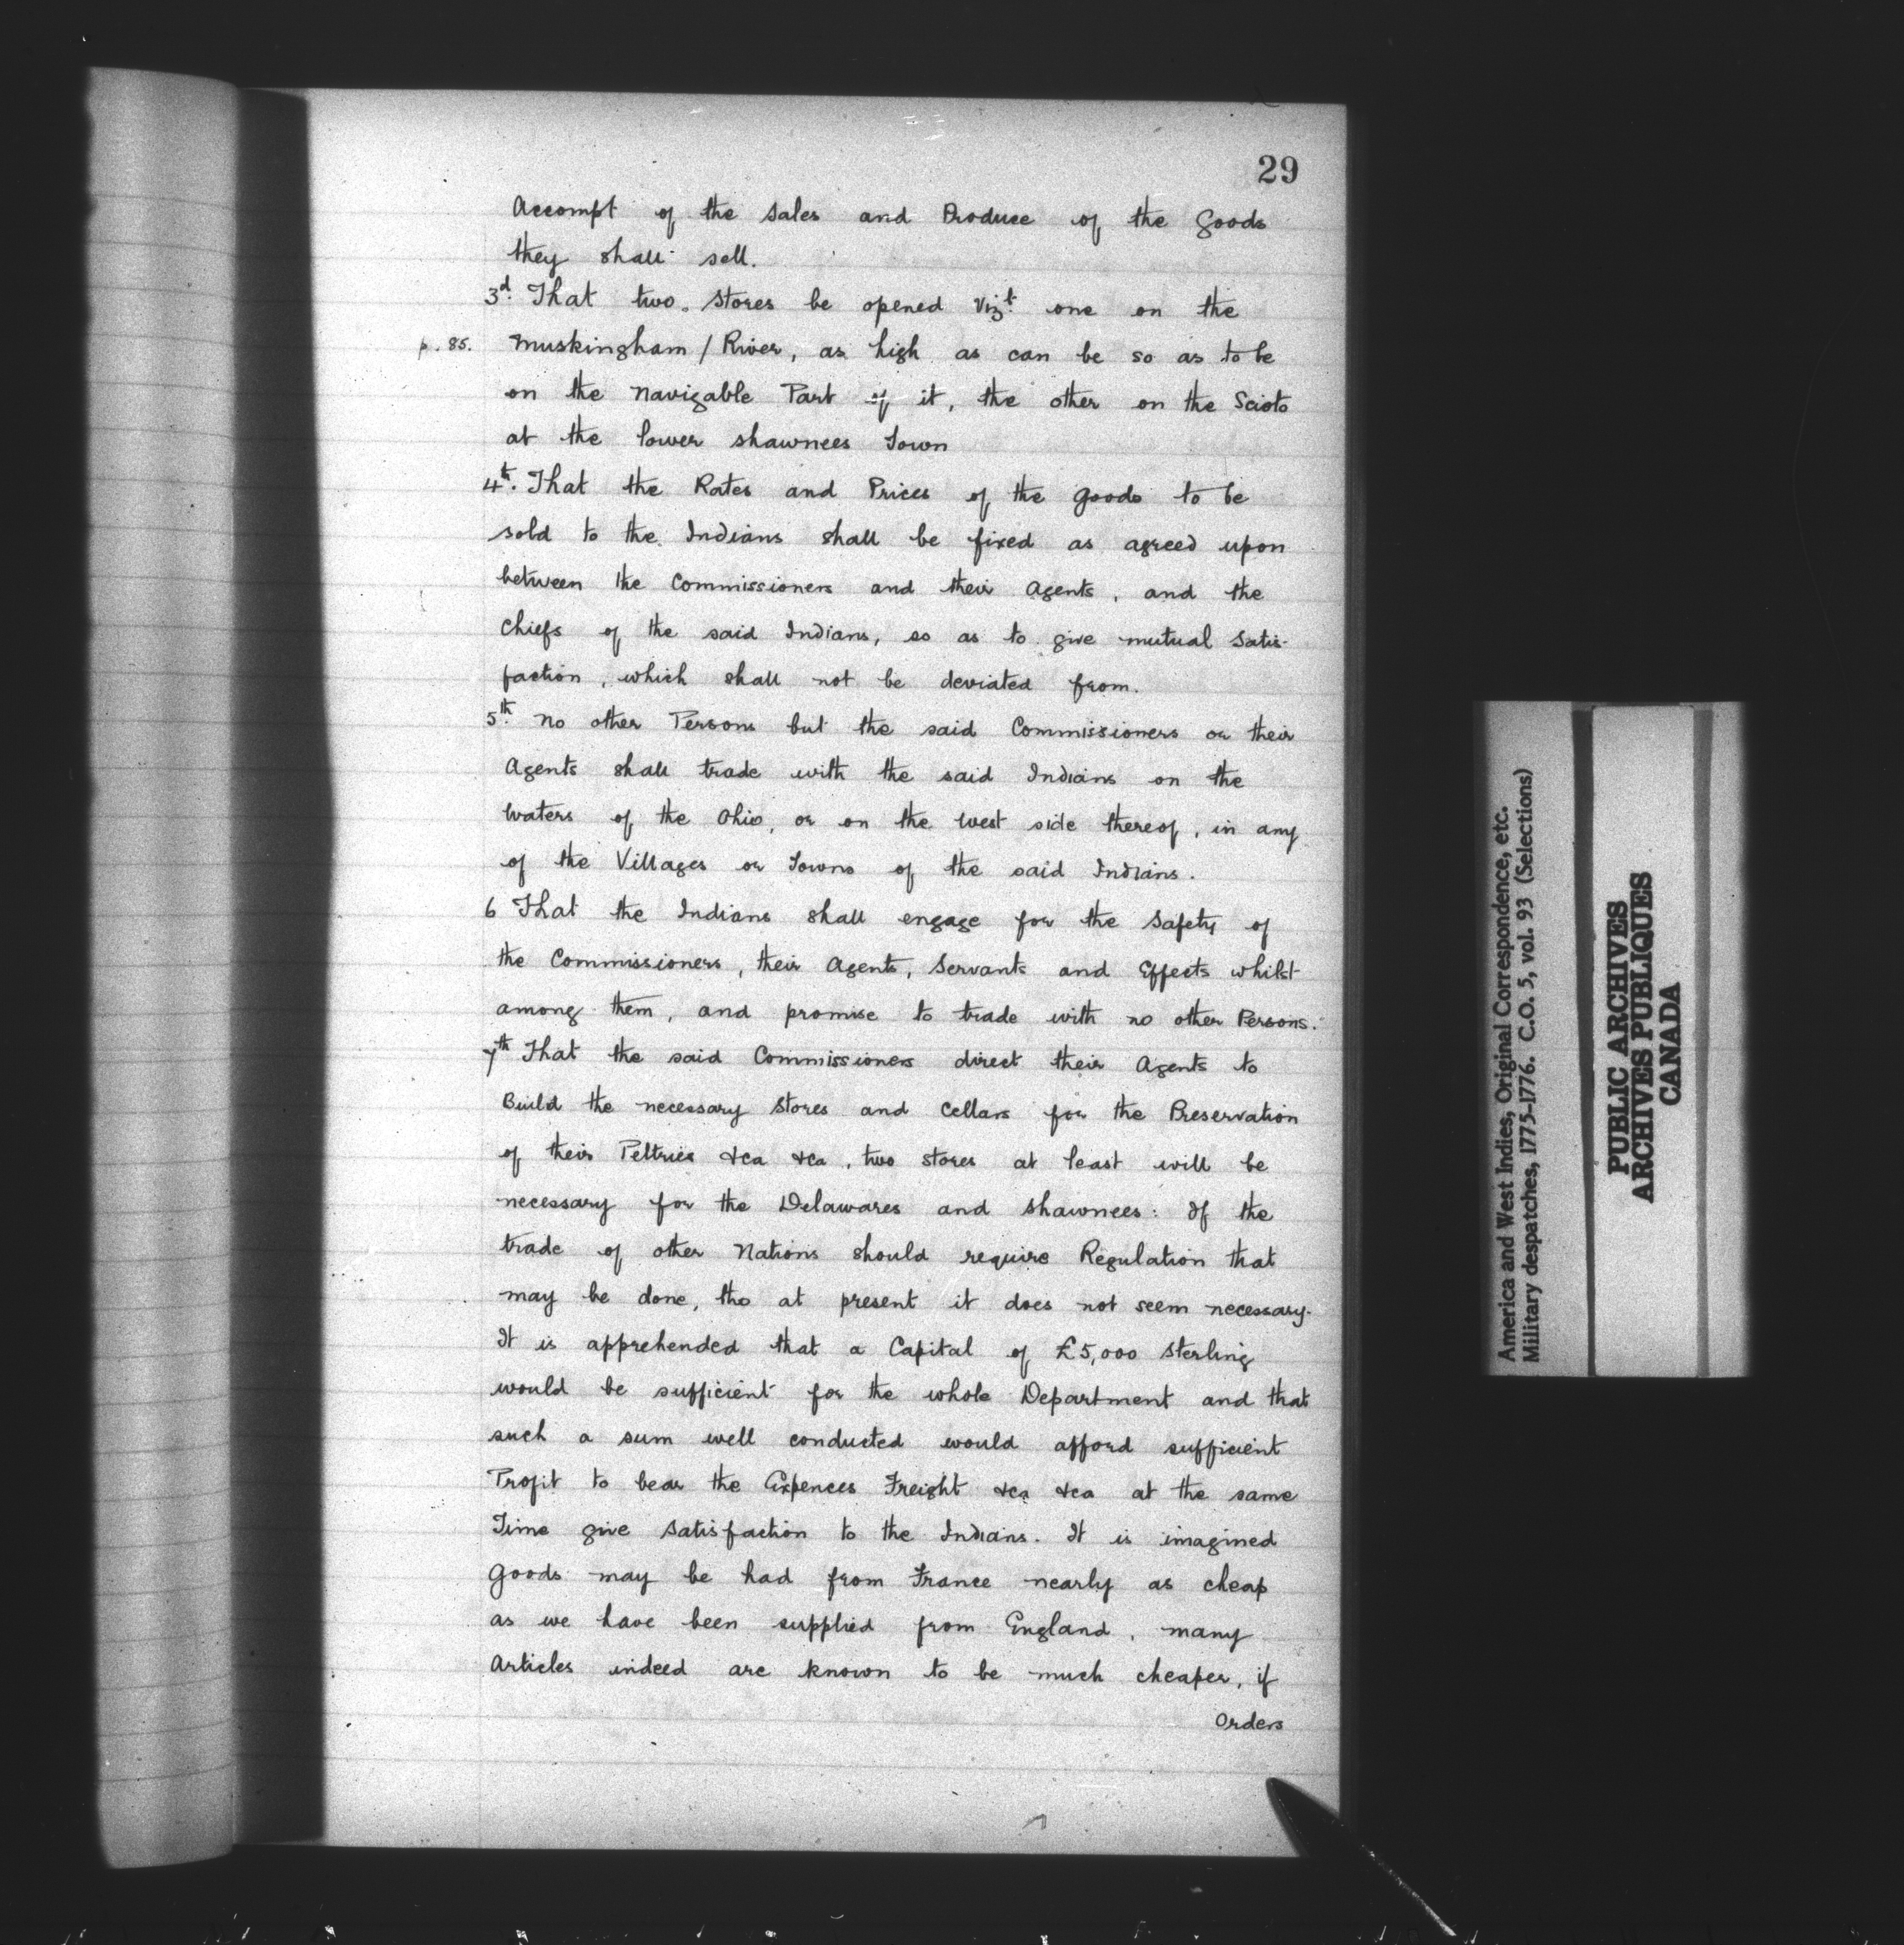 29
Accompt of the Sales and Produce of the Goods
they shall sell.
3d. That two Stores be opened Vizt. one on the
p. 85. Muskingham / River, as high as can be so as to be
on the Navigable Part of it, the other on the Scioto
at the lower Shawnees Town
4th. That the Rates and Prices of the Goods to be
sold to the Indians shall be fixed as agreed upon
between the Commissioners and their Agents, and the
Chiefs of the said Indians, so as to give mutual Satis-
faction, which shall not be deviated from.
5th. No other Persons but the said Commissioners or their
Agents shall trade with the said Indians on the
Waters of the Ohio, or on the West side thereof, in any
of the Villages or Towns of the said Indians.
6 That the Indians shall engage for the Safety of
the Commissioners, their Agents, Servants and Effects whilst
among them, and promise to trade with no other Persons.
7th That the said Commissioners direct their Agents to
Build the necessary Stores and Cellars for the Preservation
of their Peltries &ca &ca, two stores at least will be
necessary for the Delawares and Shawnees: If the
trade of other Nations should require Regulation that
may be done, tho at present it does not seem necessary.
It is apprehended that a Capital of £5,000 Sterling
would be sufficient for the whole Department and that
such a sum well conducted would afford sufficient
Profit to bear the Expences Freight &ca &ca at the same
Time give Satisfaction to the Indians. It is imagined
Goods may be had from France nearly as cheap
as we have been supplied from England, many
Articles indeed are known to be much cheaper, if
Orders
America and West Indies, Original Correspondence, etc.
Military despatches, 1775-1776. C.O. 5, vol. 93 (Selections)
PUBLIC ARCHIVES
ARCHIVES PUBLIQUES
CANADA